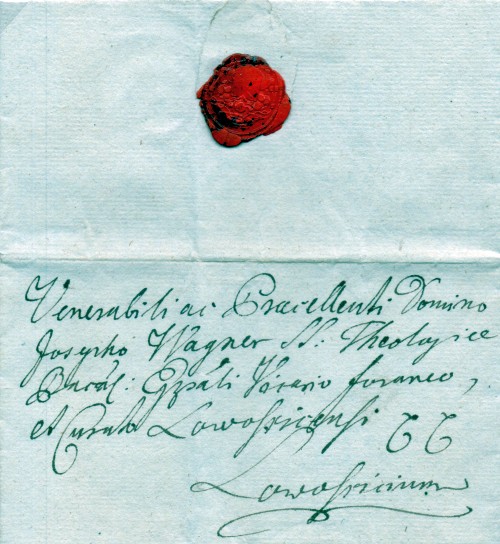 Venerabili ac Praecellenti Domino
Josepho Wagner SS: Theologiae
Bacal: Eppali Vicario foraneo,
et Curato Lowosicensi
Lowosicium